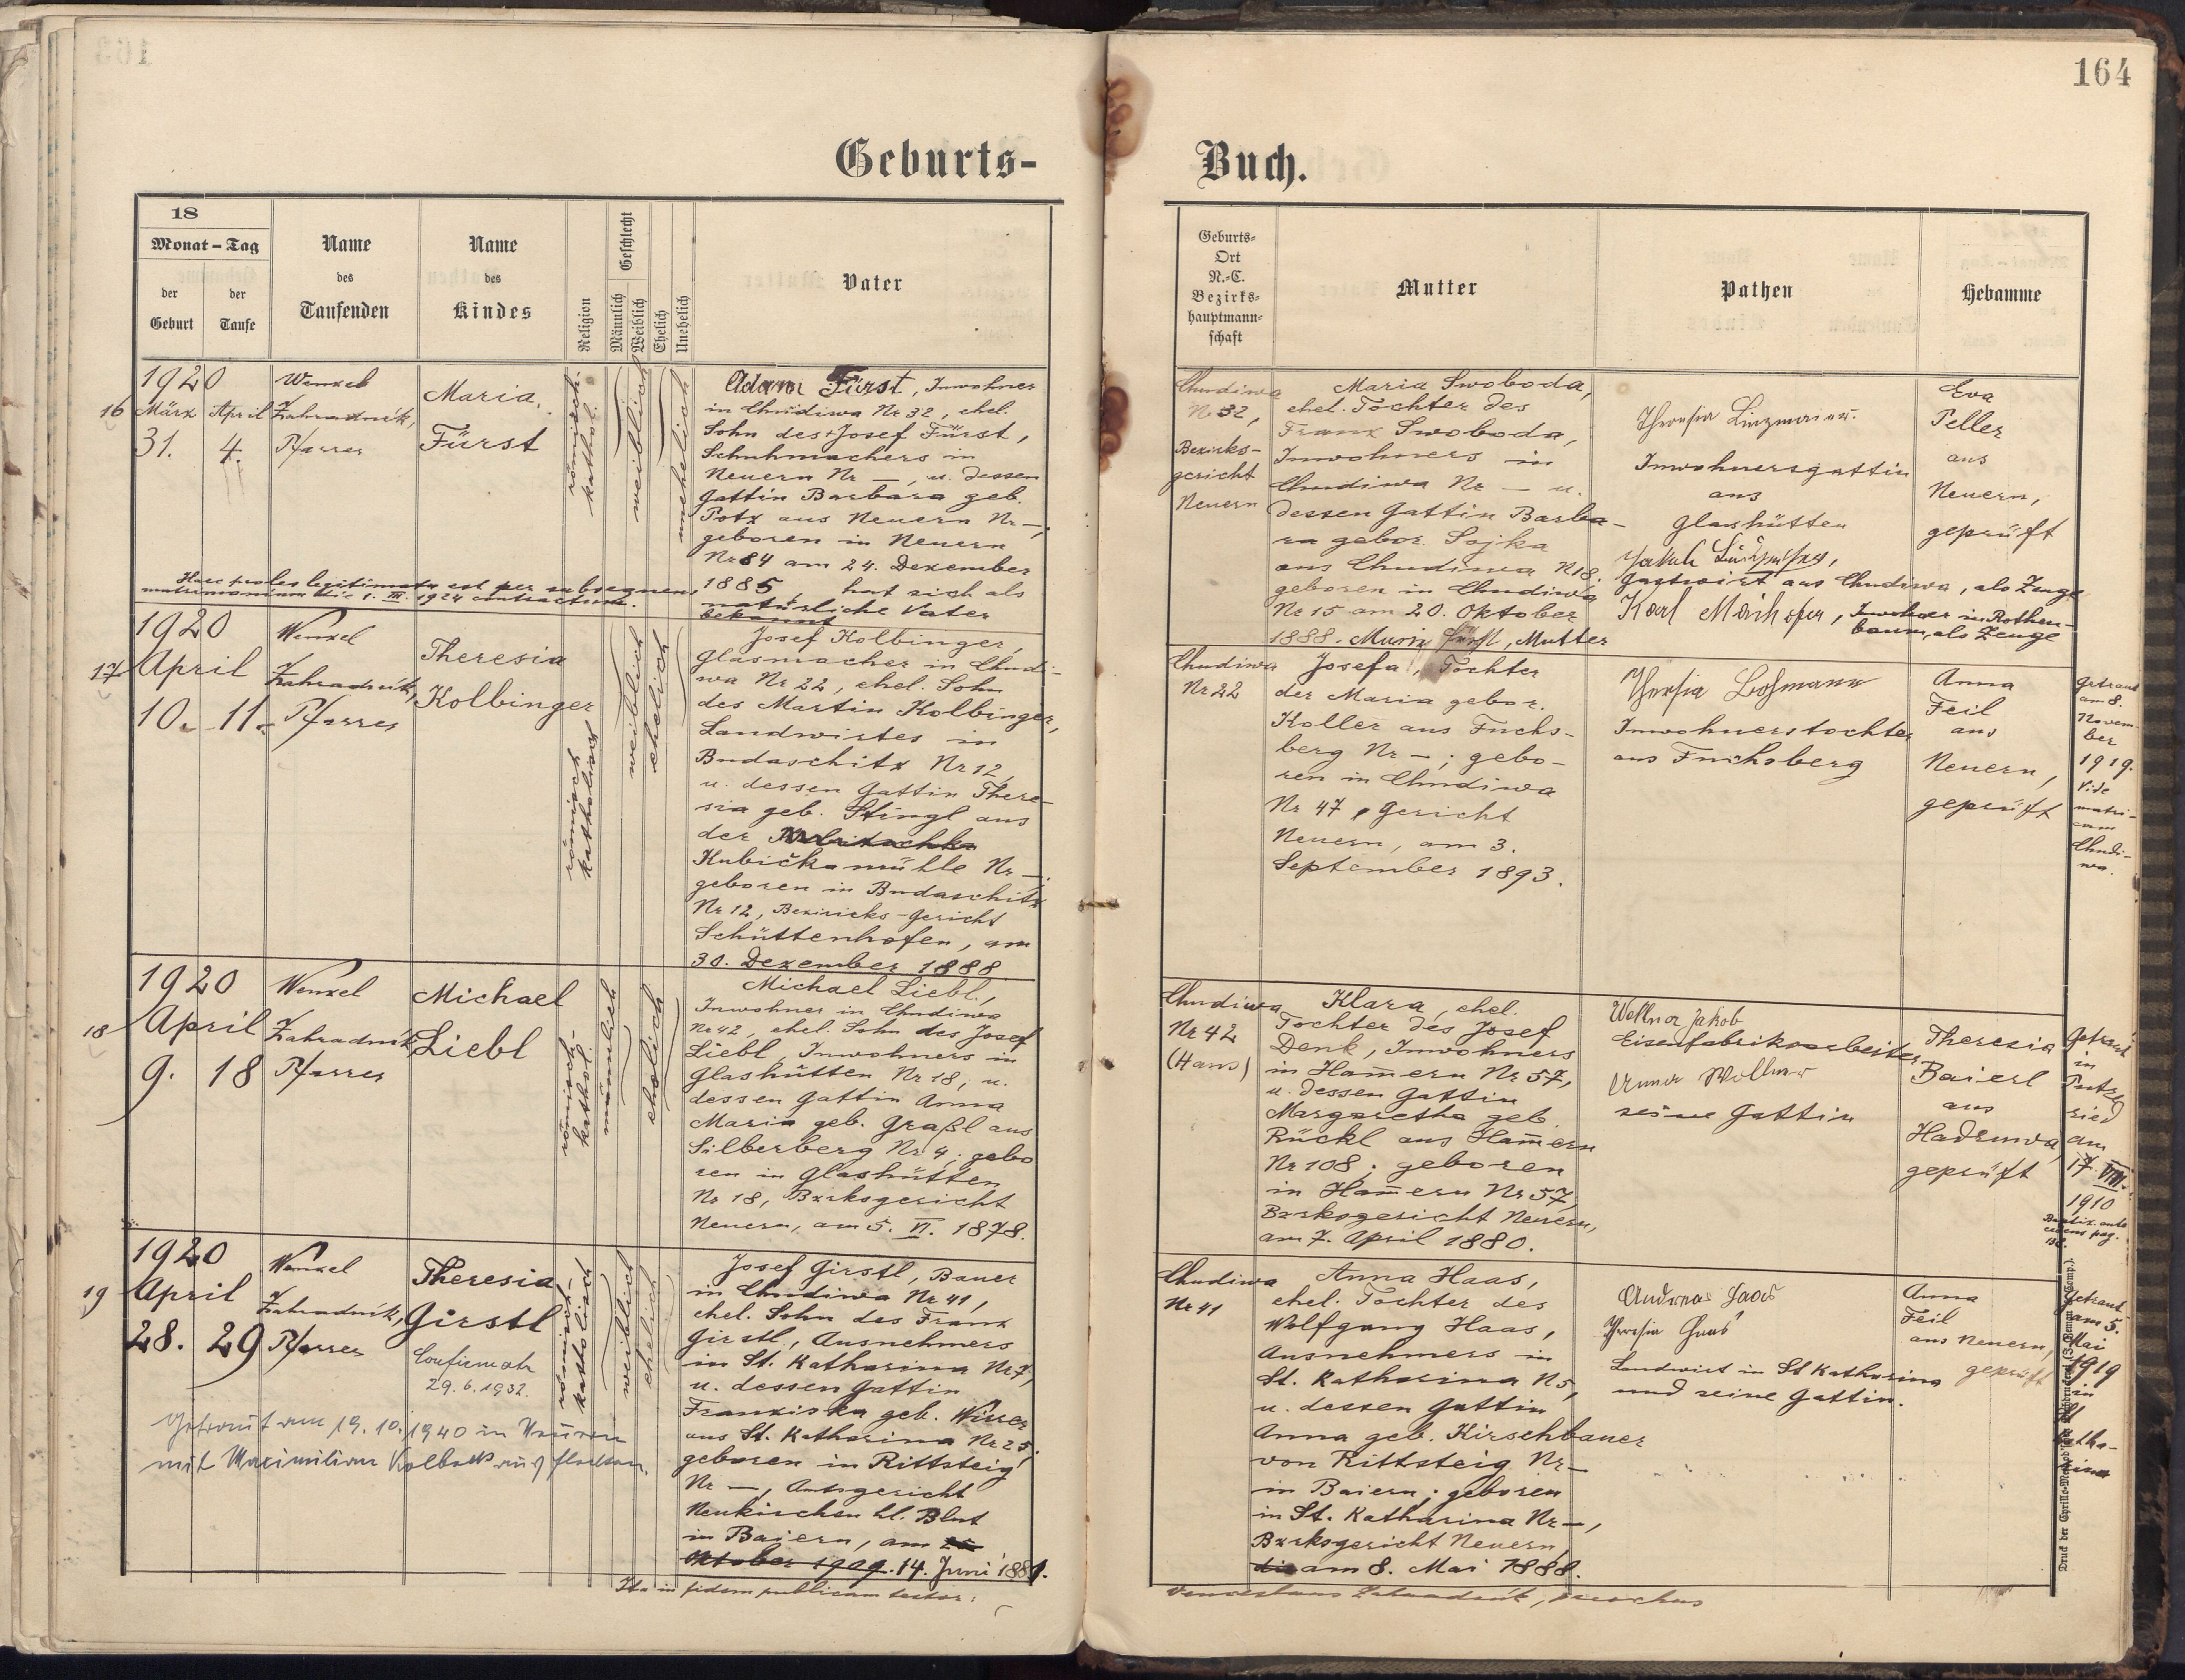 164
Geburts-
Buch.
18
Monat - Tag
der
Geburt
der
Taufe
Name
des
Taufenden
Name
des
Kindes
Religion
Geschlecht
Männlich
Weiblich
Ehelich
Unehelich
Vater
Geburts-
Ort
N.-C.
Bezirks-
hauptmann-
schaft
Mutter
Pathen
Hebamme
16
1920
März
31.
April
4.
Wenzel
Zahradník,
Pfarrer
Maria
Fürst
römisch-
kathol.
weiblich
unehelich
Adam Fürst, Inwohner
in Chudiwa Nr 32, ehel.
Sohn des + Josef Fürst,
Schuhmachers in
Neuern Nr —, u. dessen
Gattin Barbara geb.
Potz aus Neuern Nr —;
geboren in Neuern
Nr 84 am 24. Dezember
1885, hat sich als
natürliche Vater
bekannt
Haec proles legitimata est per subsequens
matrimonium die 1. III. 1924 contractum.
Chudiwa
Nr 32,
Bezirks-
gericht
Neuern
Maria Swoboda,
ehel. Tochter des
Franz Swoboda,
Inwohners in
Chudiwa Nr — u.
dessen Gattin Barba-
ra gebor. Sojka
aus Chudiwa N 18.
geboren in Chudiwa
Nr 15 am 20. Oktober
1888. Maria Fürst, Mutter
Theresia Linzmaier.
Inwohnersgattin
aus
Glashütten
Gastwirt aus Chudiwa, als Zeuge
Karl Maihofer, Inwohner in Rothen-
baum, als Zeuge
Eva
Peller
aus
Neuern,
geprüft
17
1920
April
10. 11.
Wenzel
Zahradník,
Pfarrer
Theresia
Kolbinger
römisch
katholisch
weiblich
ehelich
Josef Kolbinger,
Glasmacher in Chudi-
wa Nr 22, ehel. Sohn
des Martin Kolbinger,
Landwirtes in
Budaschitz Nr 12,
u. dessen Gattin There-
sia geb. Stingl aus
der
Kubičkamühle Nr —.
geboren in Budaschitz
Nr 12, Beziricks-Gericht
Schüttenhofen, am
30. Dezember 1888
Chudiwa
Nr 22
Josefa, Tochter
der Maria gebor.
Koller aus Fuchs-
berg Nr —; gebo-
ren in Chudiwa
Nr 47, Gericht
Neuern, am 3.
September 1893.
Theresia Loßmann
Inwohnerstochter
aus Fuchsberg
Anna
Feil
aus
Neuern,
geprüft
Getraut
am 8.
Novem-
ber
1919.
Vide
matri-
cam
Chudi-
wa.
18
1920
April
9. 18
Wenzel
Zahradník
Pfarrer
Michael
Liebl
römisch-
kathol.
männlich
ehelich
Michael Liebl,
Inwohner in Chudiwa
Nr 42, ehel. Sohn des Josef
Liebl, Inwohners in
Glashütten Nr 18, u.
dessen Gattin Anna
Maria geb. Graßl aus
Silberberg Nr 4; gebo
ren in Glashütten
Nr 18, Bzrksgericht
Neuern, am 5. VI. 1878.
Chudiwa
Nr 42
(Hans)
Klara, ehel.
Tochter des Josef
Denk, Inwohners
in Ham̅ern Nr 57,
u. dessen Gattin
Margaretha geb.
Rückl aus Ham̅ern
Nr 108; geboren
in Ham̅ern Nr 57,
Bzrksgericht Neuern,
am 7. April 1880.
Wellner Jakob
Eisenfabriksarbeiter
Anna Wellner
seine Gattin
Theresia
Baierl
aus
Hadruwa,
geprüft
Getraut
in
Putze
ried
am
17. VIII.
1910
19
1920
April
28. 29
Wenzel
Zahradník,
Pfarrer
Theresia
Girstl
Confirmata
29.6.1932.
römisch-
katholisch
weiblich
ehelich
Getraut am 19.10.1940 in Neuern
mit Maximilian
Josef Girstl, Bauer
in Chudiwa Nr 41,
ehel. Sohn des Franz
Girstl, Ausnehmers
in St. Katharina Nr 7,
u. dessen Gattin
Franziska geb. Wirrer
aus St. Katharina Nr 25;
geboren in Rittsteig
Nr —, Amtsgericht
Neukirchen hl. Blut
in Baiern, am
Oktober 1909. 14. Juni 1881.
Chudiwa
Nr 41
Anna Haas,
ehel. Tochter des
Wolfgang Haas,
Ausnehmers in
St. Katharina N 5,
u. dessen Gattin
Anna geb. Kirschbauer
von Rittsteig Nr —
in Baiern; geboren
in St. Katharina Nr —,
Bzrksgericht Neuern,
am 8. Mai 1888.
Andreas Haas
Theresia Haas
Landwirt in St Katharina
und seine Gattin.
Anna
Feil
aus Neuern,
geprüft
Getraut
am 5.
Mai
1919
in
St
Katha-
rina
Ita in fidem publicam testor:
Venceslaus Zahradník, parochus